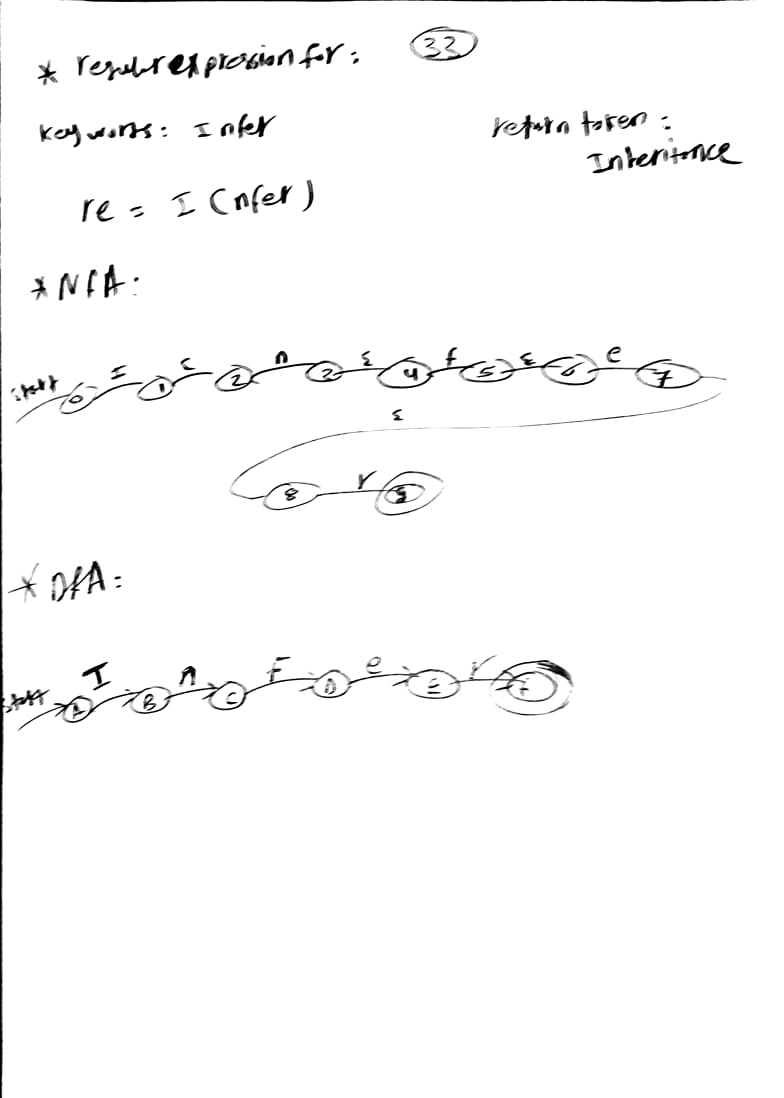 33
* regulur expression for:
Key words: Infer
return token:
Inheritance
re = I (nfer)
* NFA:
start 0 I 1 ε 2 n 3 ε 4 f 5 ε 6 e 7
ε
8 r 9
* DFA:
start A I B n C F D e E r F